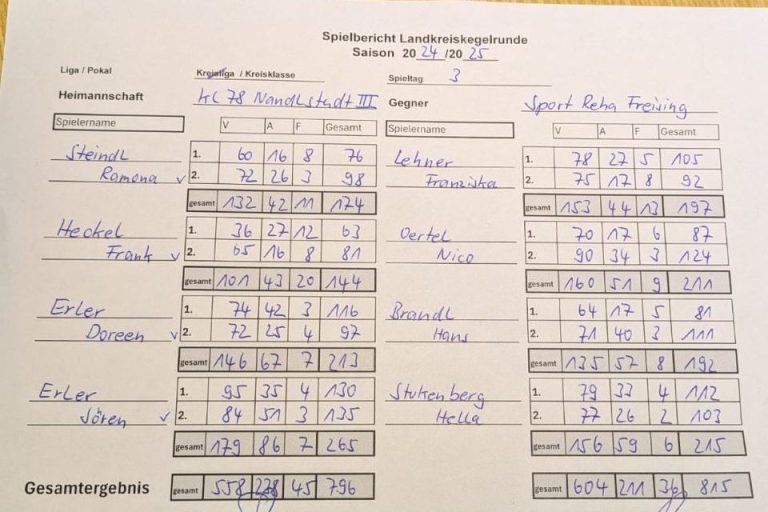 Spielbericht Landkreiskegelrunde
Saison 2024/2025
Liga / Pokal Kreisliga / Kreisklasse Spieltag 3
Heimannschaft KC 78 Nandlstadt III Gegner Sport Reha Freising
Spielername V A F Gesamt Spielername V A F Gesamt
Steindl 1. 60 16 8 76 Lehner 1. 78 27 5 105
Ramona 2. 72 26 3 98 Franziska 2. 75 17 8 92
gesamt 132 42 11 174 gesamt 153 44 13 197
Heckel 1. 36 27 12 63 Oertel 1. 70 17 6 87
Frank 2. 65 16 8 81 Nico 2. 90 34 3 124
gesamt 101 43 20 144 gesamt 160 51 9 211
Erler 1. 74 42 3 116 Brandl 1. 64 17 5 81
Doreen 2. 72 25 4 97 Hans 2. 71 40 3 111
gesamt 146 67 7 213 gesamt 135 57 8 192
Erler 1. 95 35 4 130 Stukenberg 1. 79 33 4 112
Sören 2. 84 51 3 135 Hella 2. 77 26 2 103
gesamt 179 86 7 265 gesamt 156 59 6 215
Gesamtergebnis gesamt 558 238 45 796 gesamt 604 211 36 815